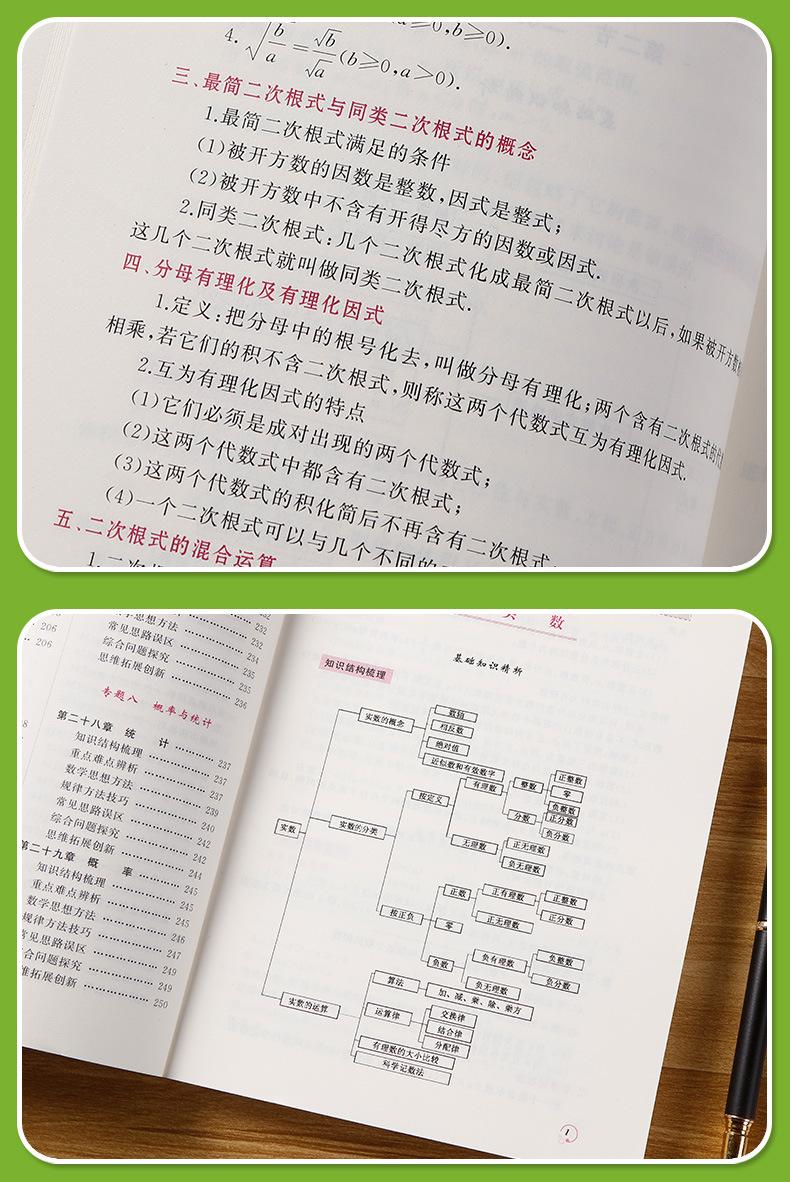 a≥0,b≥0).
4. √(b/a) = √b/√a (b≥0,a>0).
三、最简二次根式与同类二次根式的概念
1.最简二次根式满足的条件
(1)被开方数的因数是整数,因式是整式;
(2)被开方数中不含有开得尽方的因数或因式.
2.同类二次根式:几个二次根式化成最简二次根式以后,如果被开方数
这几个二次根式就叫做同类二次根式.
四、分母有理化及有理化因式
1.定义:把分母中的根号化去,叫做分母有理化;两个含有二次根式的代
相乘,若它们的积不含二次根式,则称这两个代数式互为有理化因式.
2.互为有理化因式的特点
(1)它们必须是成对出现的两个代数式;
(2)这两个代数式中都含有二次根式;
(3)这两个代数式的积化简后不再含有二次根式
(4)一个二次根式可以与几个不同的
五、二次根式的混合运算
1.二次根
206
206
232
思想方法 232
常见思路误区 234
综合问题探究 235
思维拓展创新 235
236
专题八 概率与统计
第二十八章 统 计 237
知识结构梳理 237
重点难点辨析 237
数学思想方法 239
规律方法技巧 240
常见思路误区 242
综合问题探究 242
思维拓展创新 244
第二十九章 概 率 245
知识结构梳理 245
重点难点辨析 245
数学思想方法 246
规律方法技巧 247
常见思路误区 249
合问题探究 249
维拓展创新 250
数
基础知识精析
知识结构梳理
实数
实数的概念
数轴
相反数
绝对值
近似数和有效数字
实数的分类
按定义
有理数
整数
正整数
零
负整数
分数
正分数
负分数
无理数
正无理数
负无理数
按正负
正数
正有理数
正整数
正分数
正无理数
零
负数
负有理数
负整数
负分数
负无理数
实数的运算
算法
加、减、乘、除、乘方
运算律
交换律
结合律
分配律
有理数的大小比较
科学记数法
1